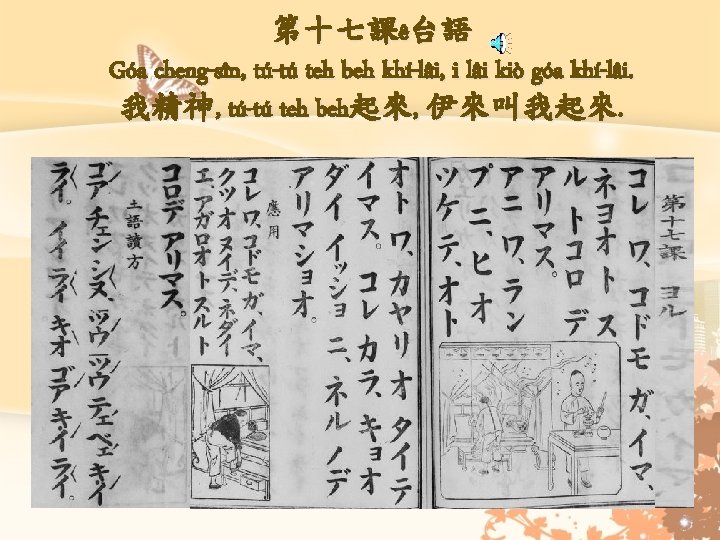 第十七課ê台語
Góa cheng-sîn, tú-tú teh beh khí-lâi, i lâi kiò góa khí-lâi.
我精神, tú-tú teh beh起來, 伊來叫我起來.
第十七課 ヨル
コレ ワ、コドモ ガ、イマ、
ネヨオ トス
ル トコロ デ
アリマス。
アニ ワ、ラン
プ ニ、ヒ オ
ツケ テ、オト
オト ワ、カヤリ オ タイテ
イマス。 コレ カラ、キョオ
ダイ イッショ ニ、ネル ノデ
アリマショオ。
應用
コレ ワ、コドモ ガ、イマ、
クツ オ ヌイデ、ネダイ
エ、アガロオ トスルト
コロデ アリマス。
土語讀方
ゴア チェン シヌ、ツウ ツウ テェ ベェ キイ
ライ。イイ ライ キオ ゴア キイ ライ。